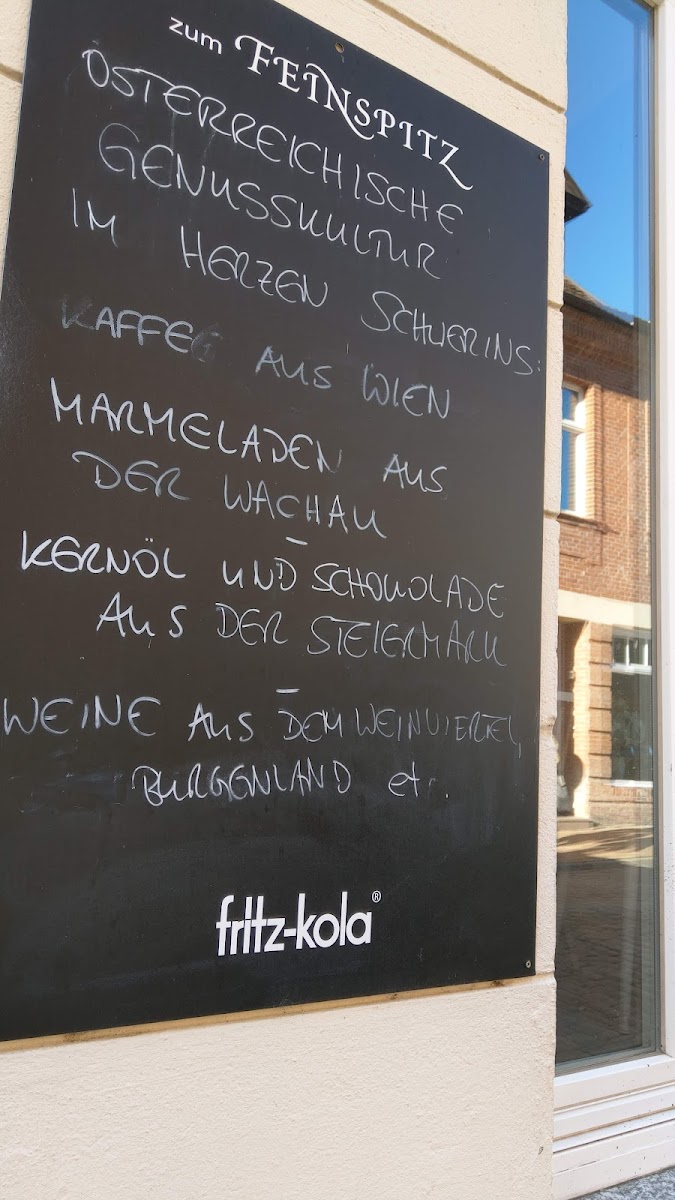 zum FEINSPITZ
ÖSTERREICHISCHE
GENUSSKULTUR
IM HERZEN SCHWERINS:
KAFFEE AUS WIEN
MARMELADEN AUS
DER WACHAU
–
KERNÖL UND SCHOKOLADE
AUS DER STEIERMARK
–
WEINE AUS DEM WEINVIERTEL,
BURGENLAND etc.
fritz-kola®